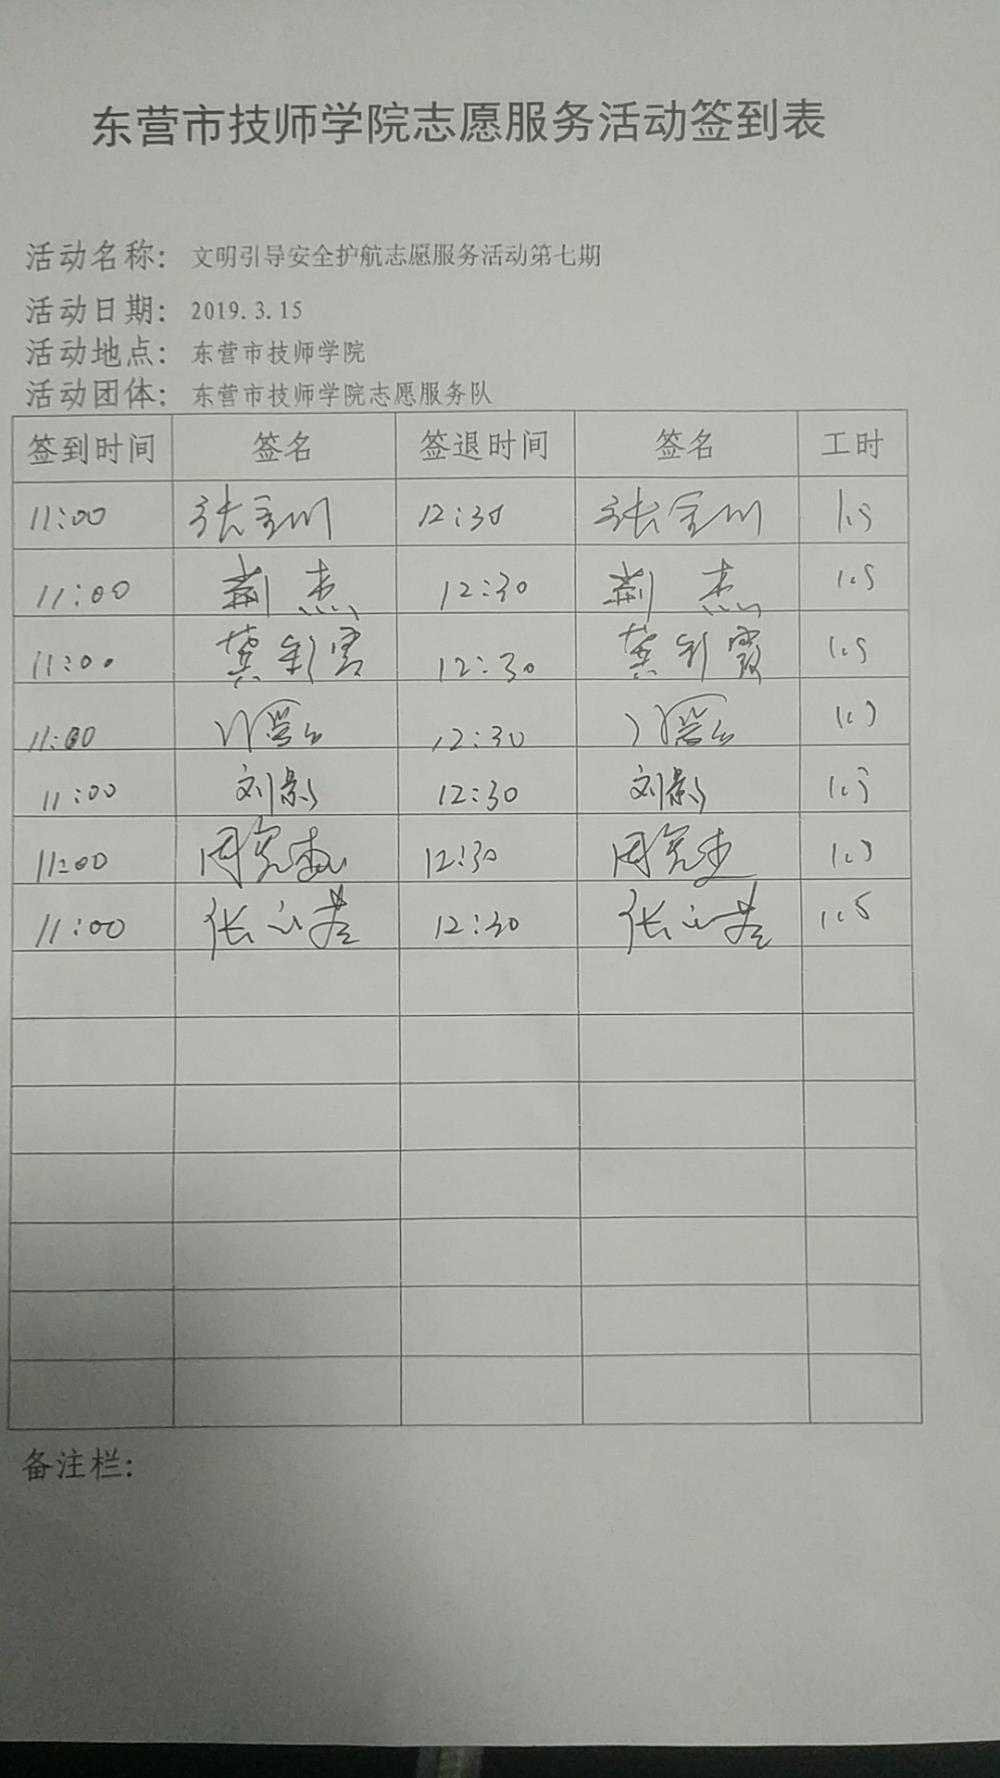 东营市技师学院志愿服务活动签到表
活动名称: 文明引导安全护航志愿服务活动第七期
活动日期: 2019.3.15
活动地点: 东营市技师学院
活动团体: 东营市技师学院志愿服务队
签到时间 签名 签退时间 签名 工时
11:00 张 12:30 张 1.5
11:00 荆杰 12:30 荆杰 1.5
11:00 龚彩霞 12:30 龚彩霞 1.5
11:00 12:30 1.5
11:00 刘影 12:30 刘影 1.5
11:00 周 12:30 周 1.5
11:00 张 12:30 张 1.5
备注栏: